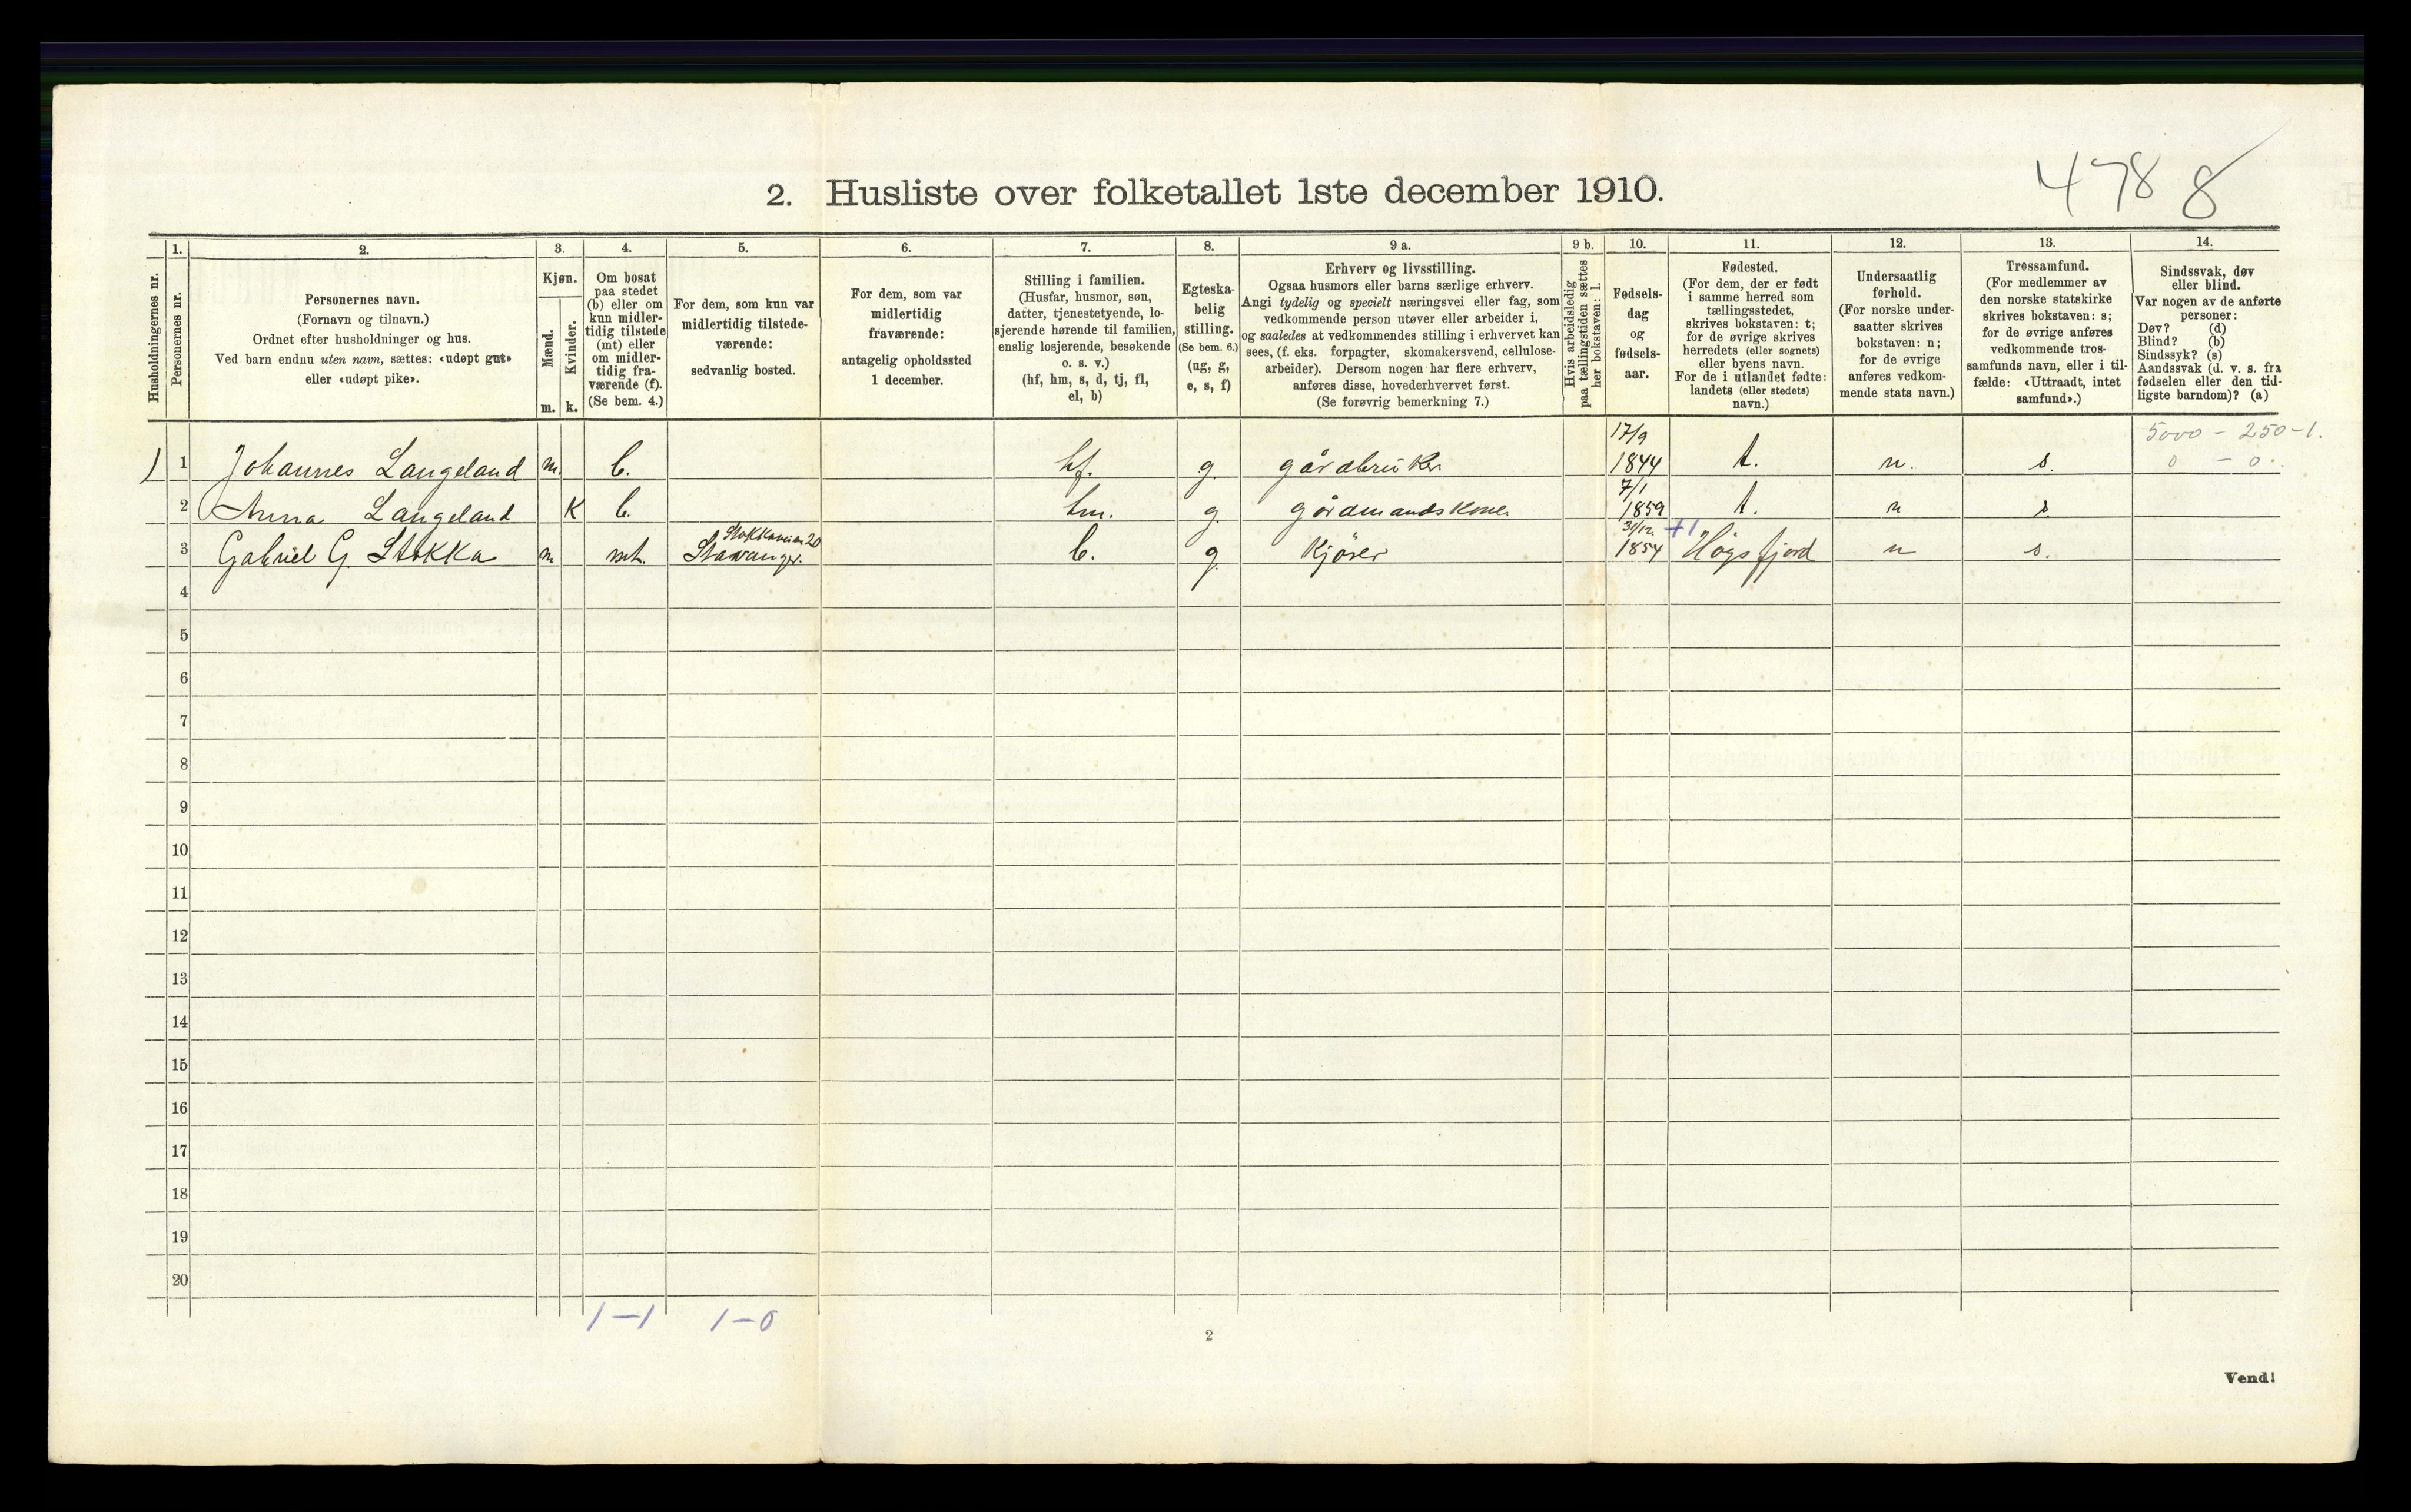 478 8
2. Husliste over folketallet 1ste december 1910.
Husholdningernes nr.
1.
Personernes nr.
2.
Personernes navn.
(Fornavn og tilnavn.)
Ordnet efter husholdninger og hus.
Ved barn endnu uten navn, sættes: «udøpt gut»
eller «udøpt pike».
3.
Kjøn.
Mænd.
Kvinder.
m. k.
4.
Om bosat
paa stedet
(b) eller om
kun midler-
tidig tilstede
(mt) eller
om midler-
tidig fra-
værende (f).
(Se bem. 4.)
5.
For dem, som kun var
midlertidig tilstede-
værende:
sedvanlig bosted.
6.
For dem, som var
midlertidig
fraværende:
antagelig opholdssted
1 december.
7.
Stilling i familien.
(Husfar, husmor, søn,
datter, tjenestetyende, lo-
sjerende hørende til familien,
enslig losjerende, besøkende
o. s. v.)
(hf, hm, s, d, tj, fl,
el, b)
8.
Egteska-
belig
stilling.
(Se bem. 6.)
(ug, g,
e, s, f)
9 a.
Erhverv og livsstilling.
Ogsaa husmors eller barns særlige erhverv.
Angi tydelig og specielt næringsvei eller fag, som
vedkommende person utøver eller arbeider i,
og saaledes at vedkommendes stilling i erhvervet kan
sees, (f. eks. forpagter, skomakersvend, cellulose-
arbeider). Dersom nogen har flere erhverv,
anføres disse, hovederhvervet først.
(Se forøvrig bemerkning 7.)
9 b.
Hvis arbeidsledig
paa tællingstiden sættes
her bokstaven: l.
10.
Fødsels-
dag
og
fødsels-
aar.
11.
Fødested.
(For dem, der er født
i samme herred som
tællingsstedet,
skrives bokstaven: t;
for de øvrige skrives
herredets (eller sognets)
eller byens navn.
For de i utlandet fødte:
landets (eller stedets)
navn.)
12.
Undersaatlig
forhold.
(For norske under-
saatter skrives
bokstaven: n;
for de øvrige
anføres vedkom-
mende stats navn.)
13.
Trossamfund.
(For medlemmer av
den norske statskirke
skrives bokstaven: s;
for de øvrige anføres
vedkommende tros-
samfunds navn, eller i til-
fælde: «Uttraadt, intet
samfund».)
14.
Sindssvak, døv
eller blind.
Var nogen av de anførte
personer:
Døv? (d)
Blind? (b)
Sindssyk? (s)
Aandssvak (d. v. s. fra
fødselen eller den tid-
ligste barndom)? (a)
17/9 5000 - 250-1.
1 1 Johannes Langeland m. b. hf. g. gårdbruker 1844 t. n. s. 0 - 0.
7/1
2 Anna Langeland K b. hm. g. gårdmandskone 1859 t. n s.
31/12 +1
3 Gabriel G. Stokka m mt. Stavanger. b. g. Kjører 1854 Högsfjord n s.
4
5
6
7
8
9
10
11
12
13
14
15
16
17
18
19
20
1-1 1-0
2
Vend!